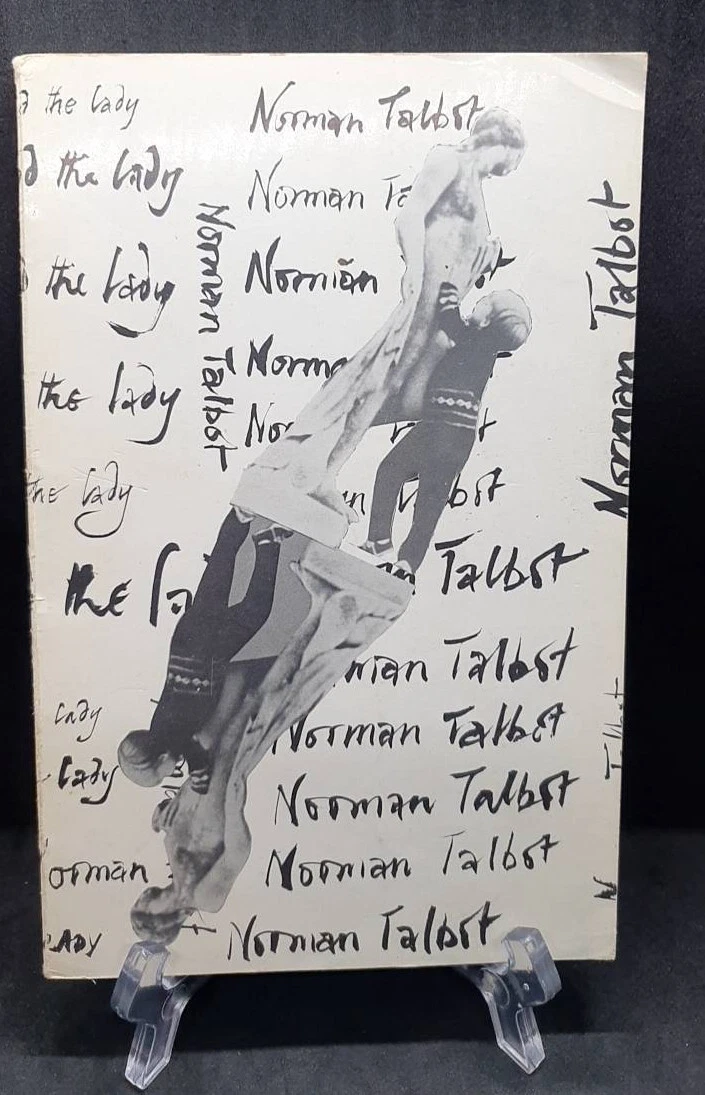 the lady
Norman Talbot
d the lady
Norman Ta
Norman Talbot
the lady
Norman
Norman Talbot
Norma
the lady
No
the lady
bst
the la
Talbot
Talbot
lady
Norman Talbot
lady
Norman Talbot
orman
Norman Talbot
LADY
Norman Talbot